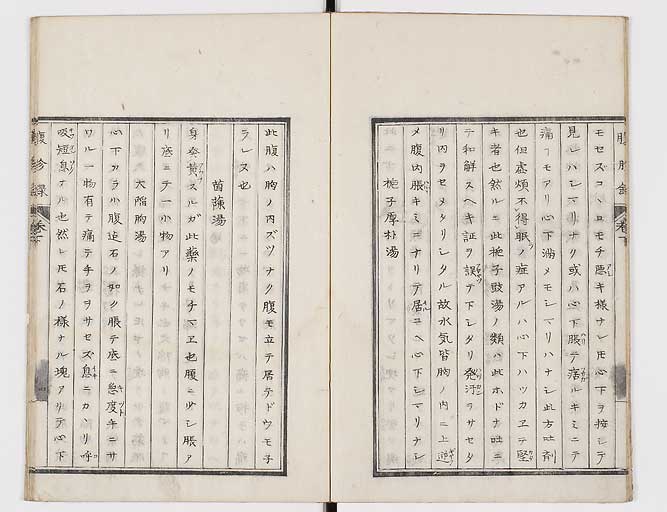 モセズコヽロモチ悪キ様ナレ𪜈心下ヲ按シテ
見レバシマリナク或ハ心下脹テ痞ルキミニテ
痛ヿモアリ心下満メモシマリハナシ此方吐剤
也但虚煩不得眠ノ症アルハ心下ハツカヱテ堅
キ者也然ルニ此梔子豉湯ノ類ハ此ホドナ吐ニ
テ和解スヘキ証ヲ誤テ下シタリ発汗ヲサセタ
リ内ヲセメタリシタル故水気皆胸ノ内ニ上逆
メ腹内脹キミニナリテ居ニヘ心下シマリナシ
梔子厚朴湯
此腹ハ胸ノ内ズツナク腹モ立テ居テドウモ子
ラレヌ也
茵蔯湯
身発黄スルガ此薬ノモチマヱ也腹ニ少シ脹ア
リ底ニテ一小物アリ
大陥胸湯
心下カラ小腹迠石ノ如ク脹テ底ニ急度手ニサ
ワル一物有テ痛テ手ヲヲサセズ息ニカヽリ呼
吸短息ナル也然レ𪜈石ノ様ナル塊アリテ心下
腹診録 巻下